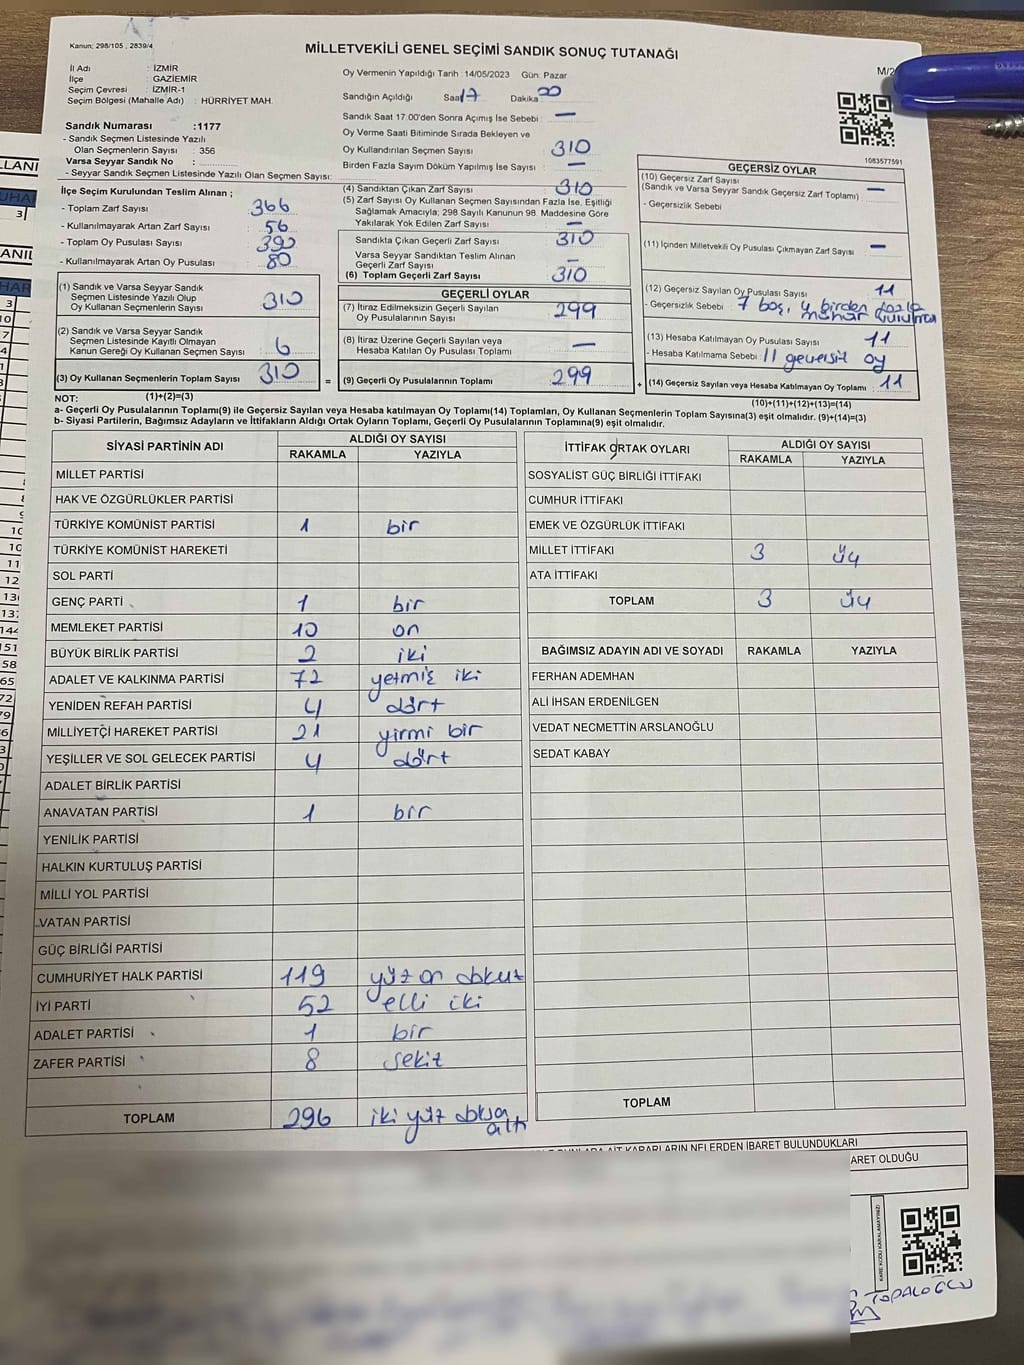 Kanun; 298/105 , 2839/4
MİLLETVEKİLİ GENEL SEÇİMİ SANDIK SONUÇ TUTANAĞI
M/2
İl Adı : İZMİR
İlçe : GAZİEMİR
Seçim Çevresi : İZMİR-1
Seçim Bölgesi (Mahalle Adı) : HÜRRİYET MAH.
Sandık Numarası :1177
- Sandık Seçmen Listesinde Yazılı
Olan Seçmenlerin Sayısı : 356
Varsa Seyyar Sandık No :
- Seyyar Sandık Seçmen Listesinde Yazılı Olan Seçmen Sayısı:
Oy Vermenin Yapıldığı Tarih :14/05/2023 Gün: Pazar
Sandığın Açıldığı Saat 17 Dakika 00
Sandık Saat 17.00'den Sonra Açımış İse Sebebi : —
Oy Verme Saati Bitiminde Sırada Bekleyen ve
Oy Kullandırılan Seçmen Sayısı 310
Birden Fazla Sayım Döküm Yapılmış İse Sayısı : —
1083577591
İlçe Seçim Kurulundan Teslim Alınan ;
- Toplam Zarf Sayısı 366
- Kullanılmayarak Artan Zarf Sayısı : 56
- Toplam Oy Pusulası Sayısı : 390
- Kullanılmayarak Artan Oy Pusulası 80
(1) Sandık ve Varsa Seyyar Sandık
Seçmen Listesinde Yazılı Olup
Oy Kullanan Seçmenlerin Sayısı : 310
(2) Sandık ve Varsa Seyyar Sandık
Seçmen Listesinde Kayıtlı Olmayan
Kanun Gereği Oy Kullanan Seçmen Sayısı 6
(3) Oy Kullanan Seçmenlerin Toplam Sayısı 310
(1)+(2)=(3)
(4) Sandıktan Çıkan Zarf Sayısı 310
(5) Zarf Sayısı Oy Kullanan Seçmen Sayısından Fazla İse, Eşitliği
Sağlamak Amacıyla, 298 Sayılı Kanunun 98. Maddesine Göre
Yakılarak Yok Edilen Zarf Sayısı : —
Sandıkta Çıkan Geçerli Zarf Sayısı 310
Varsa Seyyar Sandıktan Teslim Alınan
Geçerli Zarf Sayısı —
(6) Toplam Geçerli Zarf Sayısı 310
GEÇERLİ OYLAR
(7) İtiraz Edilmeksizin Geçerli Sayılan
Oy Pusulalarının Sayısı 299
(8) İtiraz Üzerine Geçerli Sayılan veya
Hesaba Katılan Oy Pusulası Toplamı —
= (9) Geçerli Oy Pusulalarının Toplamı 299
GEÇERSİZ OYLAR
(10) Geçersiz Zarf Sayısı
(Sandık ve Varsa Seyyar Sandık Geçersiz Zarf Toplamı) —
- Geçersizlik Sebebi
(11) İçinden Milletvekili Oy Pusulası Çıkmayan Zarf Sayısı —
(12) Geçersiz Sayılan Oy Pusulası Sayısı 11
- Geçersizlik Sebebi : 7 boş, 4 birden fazla
mühür vurulmuş
(13) Hesaba Katılmayan Oy Pusulası Sayısı 11
- Hesaba Katılmama Sebebi : 11 geçersiz oy
+ (14) Geçersiz Sayılan veya Hesaba Katılmayan Oy Toplamı 11
(10)+(11)+(12)+(13)=(14)
NOT:
a- Geçerli Oy Pusulalarının Toplamı(9) ile Geçersiz Sayılan veya Hesaba katılmayan Oy Toplamı(14) Toplamları, Oy Kullanan Seçmenlerin Toplam Sayısına(3) eşit olmalıdır. (9)+(14)=(3)
b- Siyasi Partilerin, Bağımsız Adayların ve İttifakların Aldığı Ortak Oyların Toplamı, Geçerli Oy Pusulalarının Toplamına(9) eşit olmalıdır.
SİYASİ PARTİNİN ADI ALDIĞI OY SAYISI
RAKAMLA YAZIYLA
MİLLET PARTİSİ
HAK VE ÖZGÜRLÜKLER PARTİSİ
TÜRKİYE KOMÜNİST PARTİSİ 1 bir
TÜRKİYE KOMÜNİST HAREKETİ
SOL PARTİ
GENÇ PARTİ 1 bir
MEMLEKET PARTİSİ 10 on
BÜYÜK BİRLİK PARTİSİ 2 iki
ADALET VE KALKINMA PARTİSİ 72 yetmiş iki
YENİDEN REFAH PARTİSİ 4 dört
MİLLİYETÇİ HAREKET PARTİSİ 21 yirmi bir
YEŞİLLER VE SOL GELECEK PARTİSİ 4 dört
ADALET BİRLİK PARTİSİ
ANAVATAN PARTİSİ 1 bir
YENİLİK PARTİSİ
HALKIN KURTULUŞ PARTİSİ
MİLLİ YOL PARTİSİ
VATAN PARTİSİ
GÜÇ BİRLİĞİ PARTİSİ
CUMHURİYET HALK PARTİSİ 119 yüz on dokuz
İYİ PARTİ 52 elli iki
ADALET PARTİSİ 1 bir
ZAFER PARTİSİ 8 sekiz
TOPLAM 296 iki yüz doksan
altı
İTTİFAK ORTAK OYLARI ALDIĞI OY SAYISI
RAKAMLA YAZIYLA
SOSYALİST GÜÇ BİRLİĞİ İTTİFAKI
CUMHUR İTTİFAKI
EMEK VE ÖZGÜRLÜK İTTİFAKI
MİLLET İTTİFAKI 3 üç
ATA İTTİFAKI
TOPLAM 3 üç
BAĞIMSIZ ADAYIN ADI VE SOYADI RAKAMLA YAZIYLA
FERHAN ADEMHAN
ALİ İHSAN ERDENİLGEN
VEDAT NECMETTİN ARSLANOĞLU
SEDAT KABAY
TOPLAM
KARARLARIN NELERDEN İBARET BULUNDUKLARI
ARET OLDUĞU
KARE KODU KARALAMAYINIZ!
TOPALOĞLU